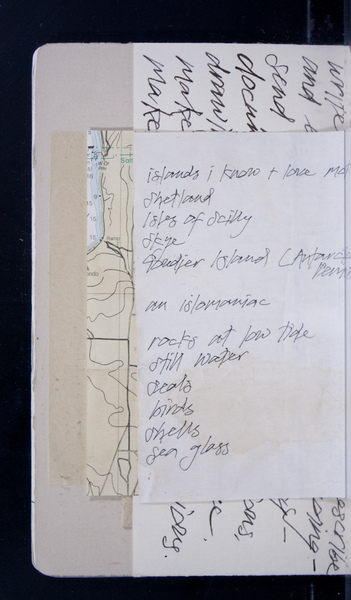 write
and
send
docu
drawi
make
make
islands i know + love mo
shetland
isles of scilly
skye
Goudier Island (Antarc
an islomaniac
rocks at low tide
still water
seals
birds
shells
sea glass
escribe
oing-